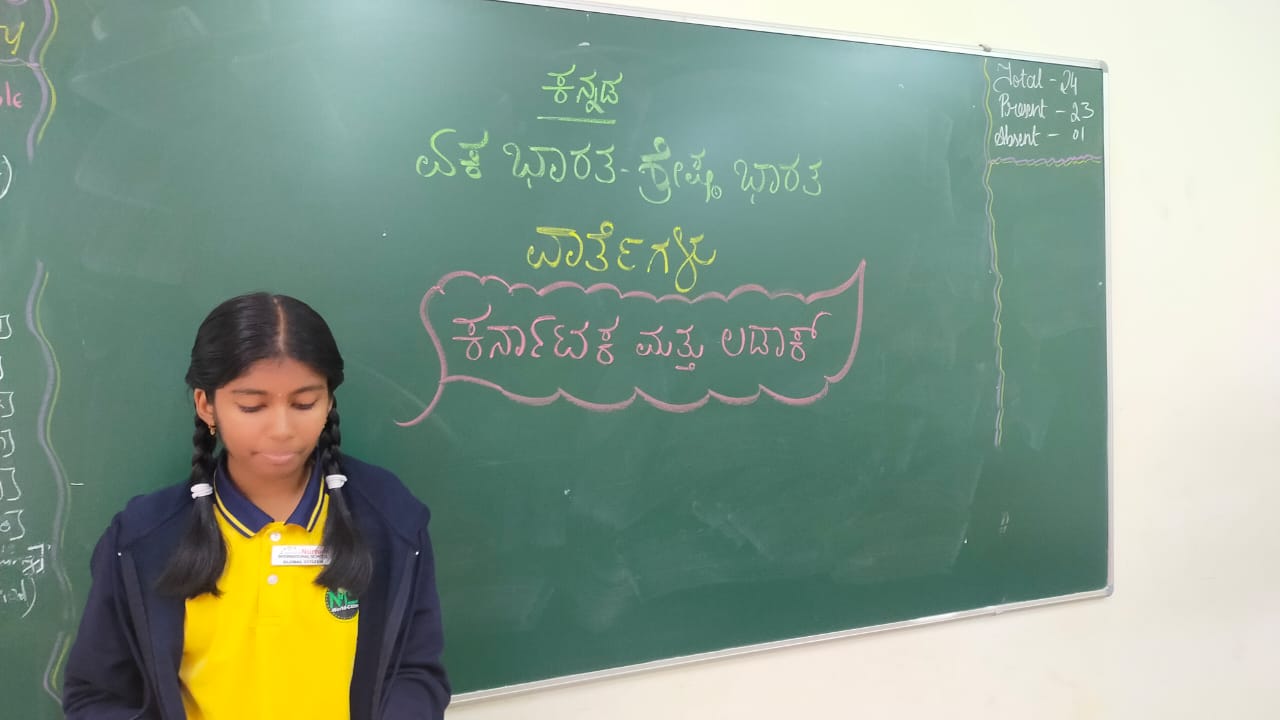 ಕನ್ನಡ
ಏಕ ಭಾರತ-ಶ್ರೇಷ್ಠ ಭಾರತ
ವಾರ್ತೆಗಳು
ಕರ್ನಾಟಕ ಮತ್ತು ಲಡಾಕ್
Total - 24
Present - 23
Absent - 01
INTERNATIONAL SCHOOL
GLOBAL CITIZEN